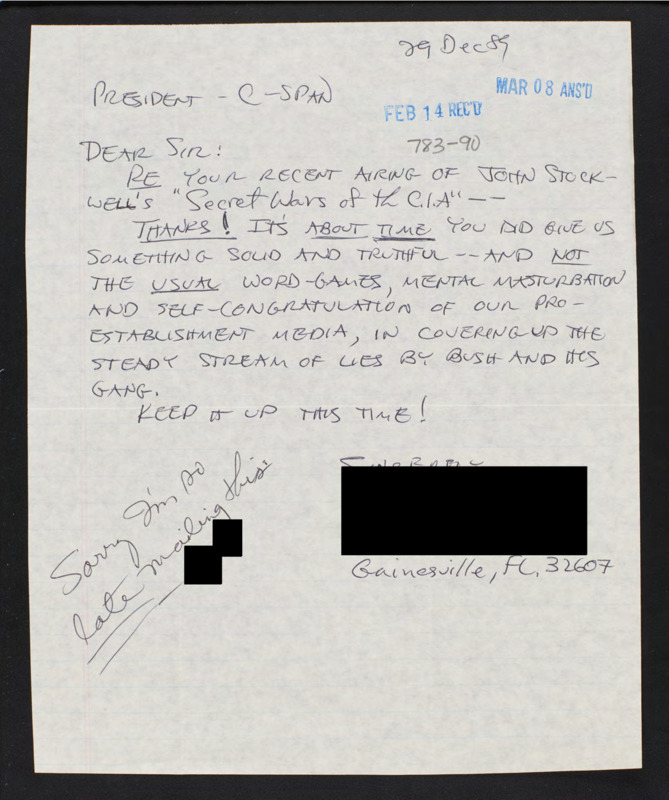 29 Dec 89
PRESIDENT - C-SPAN
MAR 08 ANS'D
FEB 14 REC'D
783-90
DEAR SIR:
RE YOUR RECENT AIRING OF JOHN STOCK-
WELL'S "Secret Wars of th C.I.A" --
THANKS! IT'S ABOUT TIME YOU DID GIVE US
SOMETHING SOLID AND TRUTHFUL -- AND NOT
THE USUAL WORD-GAMES, MENTAL MASTURBATION
AND SELF-CONGRATULATION OF OUR PRO-
ESTABLISHMENT MEDIA, IN COVERING UP THE
STEADY STREAM OF LIES BY BUSH AND HIS
GANG.
KEEP IT UP THIS TIME!
SINCERELY
Gainesville, FL, 32607
Sorry I'm so
late mailing this